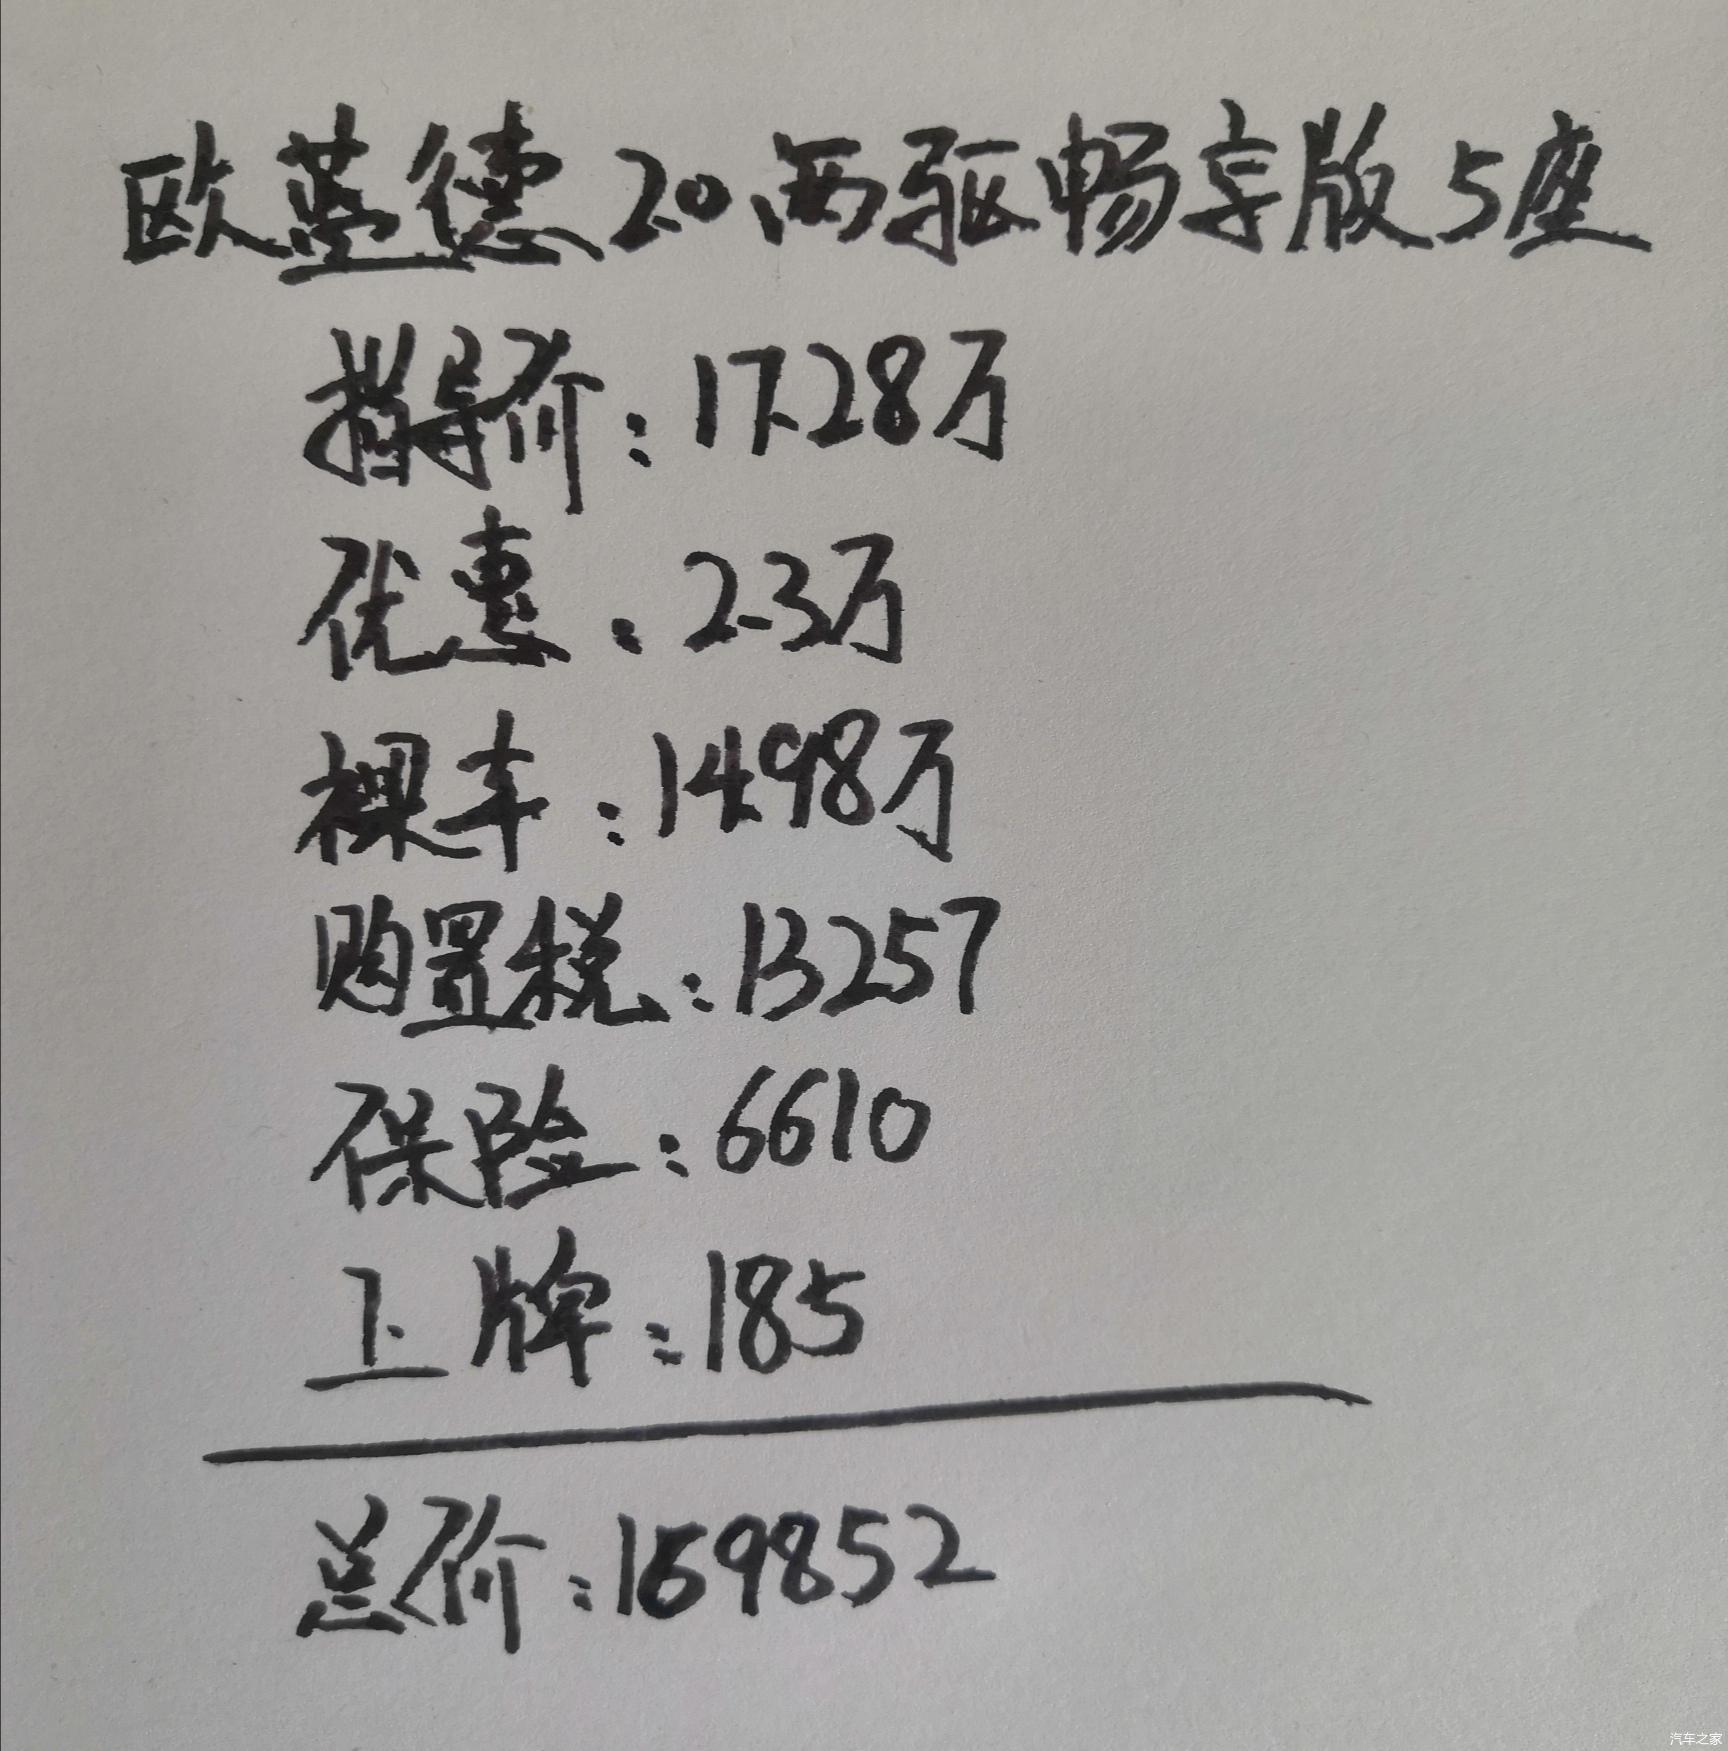 欧蓝德2.0两驱畅享版5座
指导价:17.28万
优惠:2.3万
裸车:14.98万
购置税:13257
保险:6610
上牌:185
总价:169852
汽车之家